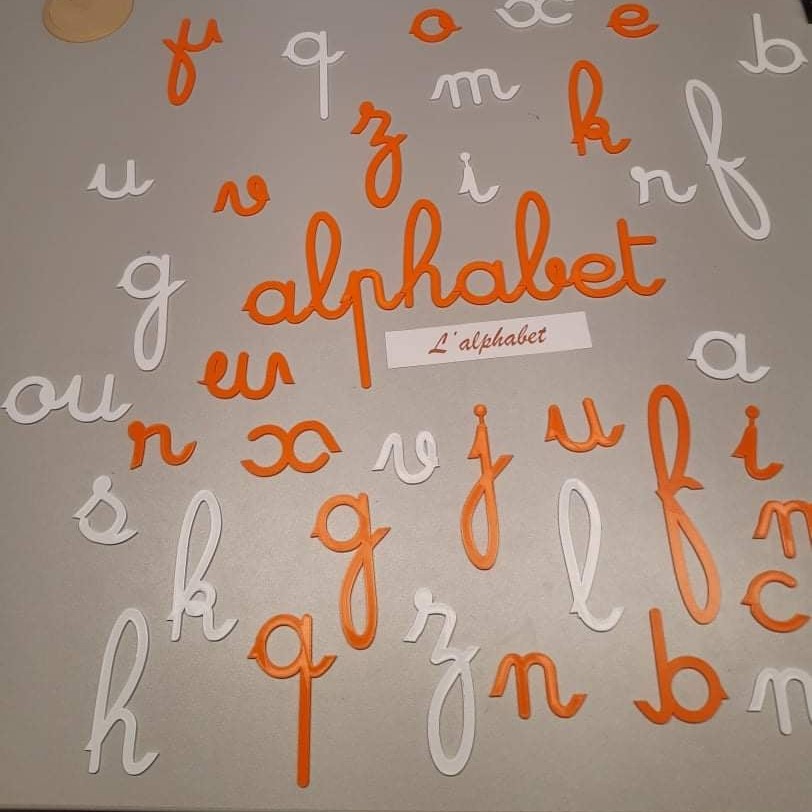 y q o x e b
m k
z
u v i r f
g alphabet
L'alphabet
a
eu
ou
r x v j u f i
s g n
k l c
h q z n b n